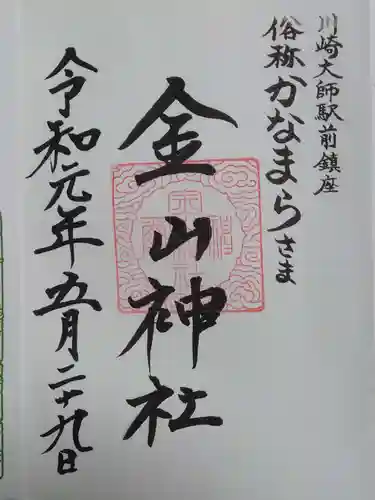 川崎大師駅前鎮座
俗称かなまらさま
金山神社
令和元年五月二十九日